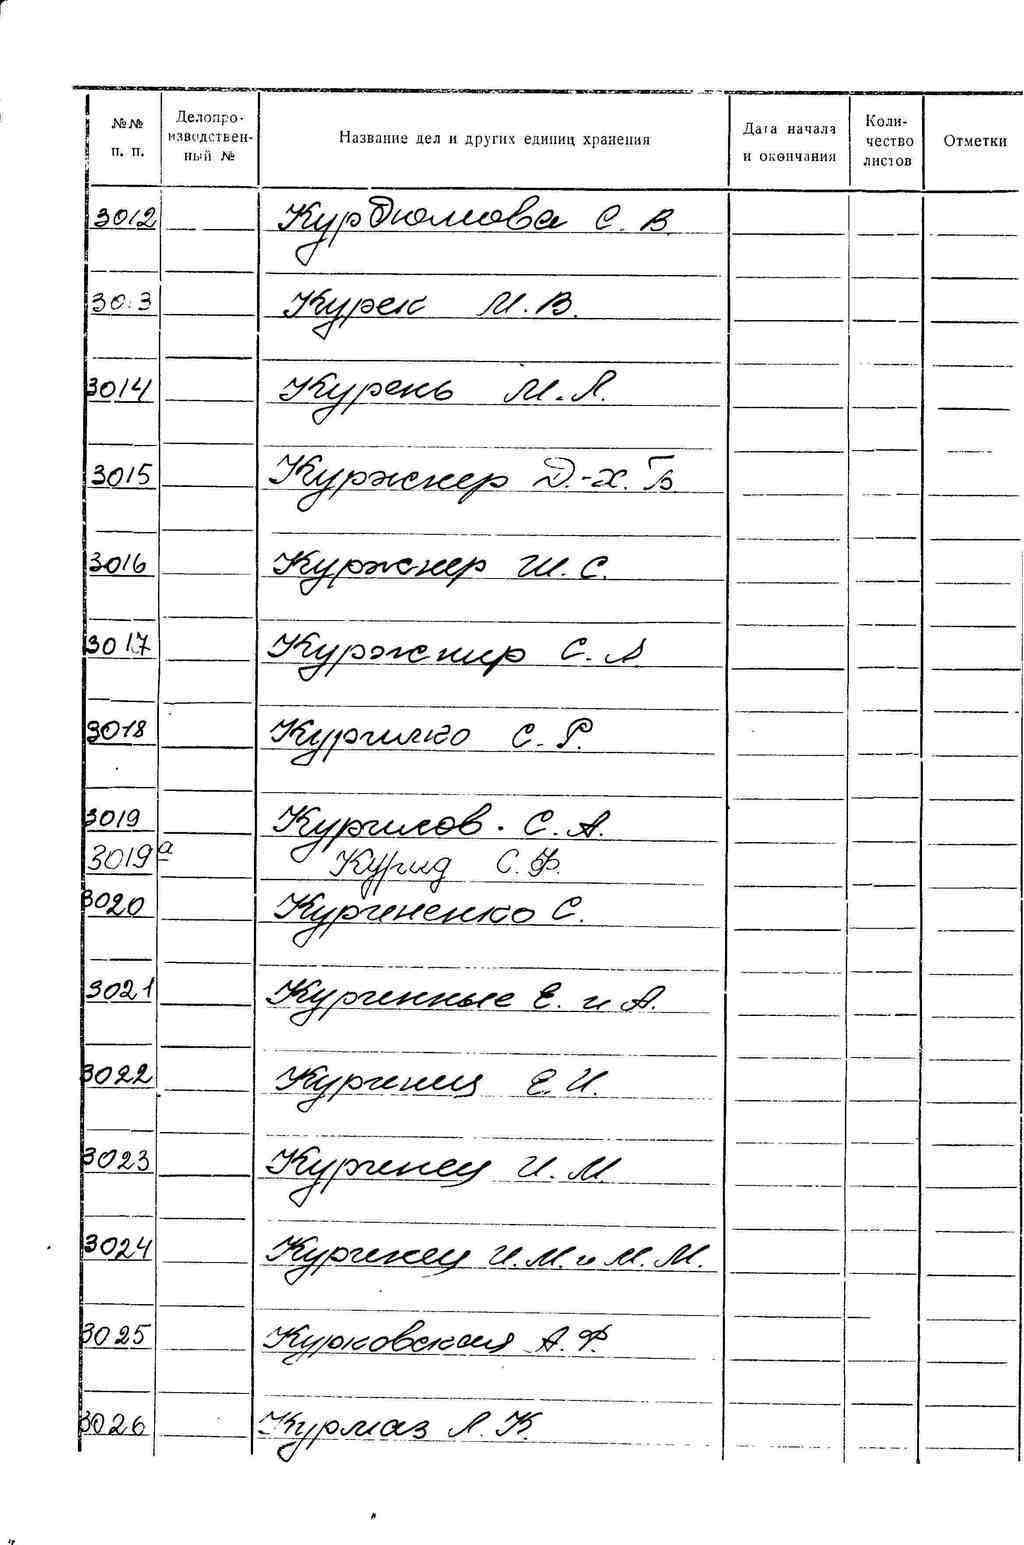 №№ п. п. Делопроизводственный № Название дел и других единиц хранения Дата начала и окончания Количество листов Отметки
3012 Курдюмова С. В.
3013 Курек М. В.
3014 Курень М. Л.
3015 Куржнер Д.-Х. Б.
3016 Куржнер Ш. С.
3017 Куржнир С. А
3018 Курилко С. Р.
3019 Курилов. С. А.
3019а Курид С. Ф.
3020 Куриненко С.
3021 Куринные Е. и А.
3022 Куриниц Е. И.
3023 Куринец И. М.
3024 Куринец И. М. и М. М.
3025 Курковская А. Ф.
3026 Курмаз Л. К.